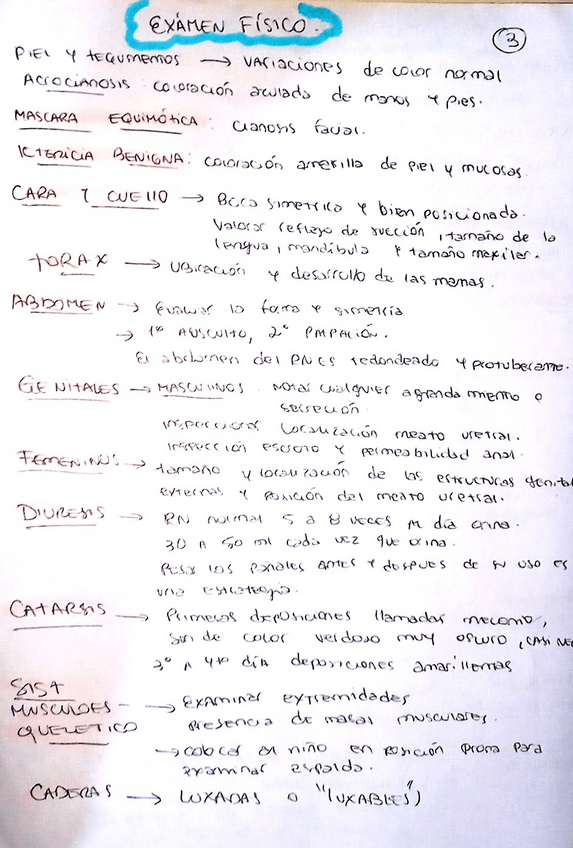 EXÁMEN FÍSICO.
3
PIEL Y TEGUMENTOS → VARIACIONES DE COLOR NORMAL
ACROCIANOSIS: COLORACIÓN azulada de manos y pies.
MASCARA EQUIMÓTICA: cianosis facial.
ICTERICIA BENIGNA: coloración amarilla de piel y mucosas.
CARA Y CUELLO → Boca simetrica y bien posicionada.
Valorar reflejo de succión, tamaño de la
lengua, mandíbula y tamaño maxilar.
TORAX → UBICACIÓN y desarrollo de las mamas.
ABDOMEN → Evaluar la forma y simetría
→ 1º AUSCULTO, 2º PALPACIÓN.
El abdomen del RN es redondeado y protuberante.
GENITALES → MASCULINOS. Notar cualquier agrandamiento o
secreción.
Inspeccionar localización meato uretral.
Inspección escroto y permeabilidad anal.
FEMENINOS → tamaño y localización de las estructuras genital
externas y posición del meato uretral.
DIURESIS → RN normal 5 a 8 veces al día orina.
30 A 50 ml cada vez que orina.
Pesar los pañales antes y despues de su uso es
una estrategia.
CATARSIS → Primeras deposiciones llamadas meconio,
son de color verdoso muy oscuro, (CASI NE
3º A 4to día deposiciones amarillentas
SIST
MUSCULOES- → examinar extremidades
presencia de masas musculares.
QUELETICO
→ colocar al niño en posición prona para
examinar espalda.
CADERAS → LUXADAS O "LUXABLES")